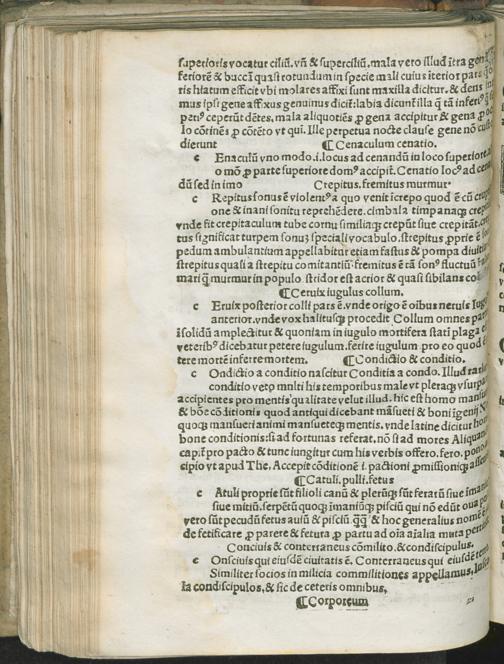 superioris vocatur ciliũ. vñ & superciliũ. mala vero illud ĩtra
feriorẽ & buccã quasi rotundum in specie mali cuius iterior pars
ris hiatum efficit vbi molares affixi sunt maxilla dicitur. & dens
mus ipsi gene affixus genuinus dicit̃: labia
ceperũt dẽtes. mala aliquotiẽs ꝓ gena accipitur & gena ꝓ
lo cõtinẽs ꝓ cõtẽto vt qui. Ille perpetua nocte clause gene nõ
dierunt ¶ Cenaculum cenatio.
c Enaculũ vno modo .i. locus ad cenandũ in loco superiore.
o mõ ꝓ parte superiore domꝰ accipit̃. Cenatio locꝰ ad
dũ sed in imo Crepitus. fremitus murmur.
c Repitus sonus ẽ violentꝰ a quo venit ĩcrepo quod ẽ cũ
one & inani sonitu reprehẽdere. cimbala timpanaqꝫ
vnde fit crepitaculum tube cornu similiaqꝫ crepũt siue crepitãt.
tus significat turpem sonuꝫ speciali vocabulo. strepitus ꝓprie ẽ
pedum ambulantium appellabitur etiam fastus & pompa
strepitus quasi a strepitu comitantiũ. fremitus ẽ tã sonꝰ fluctuũ
mariqꝫ murmur in populo. stridor est acrior & quasi sibilans
¶ Ceruix iugulus collum.
c Eruix posterior colli pars ẽ. vnde origo ẽ oibus neruis
anterior. vnde vox halitusqꝫ procedit Collum omnes
ĩ solidũ amplectitur & quoniam in iugulo mortifera stati plaga
veteribꝰ dicebatur petere iugulum. ferire iugulum pro eo quod ẽ
tere mortẽ inferre mortem. ¶ Condictio & conditio.
c Ondictio a conditio nascitur Conditia a condo. Illud
conditio veto multi his temporibus male vt pleraqꝫ
accipientes pro mentis qualitate velut illud. hic est homo
& bõe cõditionis quod antiqui dicebant mãsueti & boni ĩgenij
quoqꝫ mansueri animi mansueteqꝫ mentis. vnde latine dicitur
bone conditionis: si ad fortunas referat, nõ si ad mores
cap. ĩt pro pacto & tunc iungitur cum his verbis offero. fero. pono.
cipio vt apud The. Accepit cõditionẽ .i. pactioni ꝓmissioniqꝫ
¶ Catuli. pulli. fetus
c Atuli proprie sũt filioli canũ & plerũqꝫ sũt ferarũ siue
siue mitiũ. serpẽtũ quoqꝫ ĩmaniũqꝫ pisciũ qui nõ edũt oua
vero sũt pecudũ fetus auiũ & pisciũ & hoc generalius
de fetificare ꝓ parere & fetura ꝓ partu ad oia aĩalia muta
Conciuis & conterraneus cõmilito. & condiscipulus.
c Onsciuis qui eiusdẽ ciuitatis ẽ. Conterraneus qui eiusdẽ
Similiter socios in milicia commilitiones appellamus.
la condiscipulos. & sic de ceteris omnibus.
¶ Corporeum